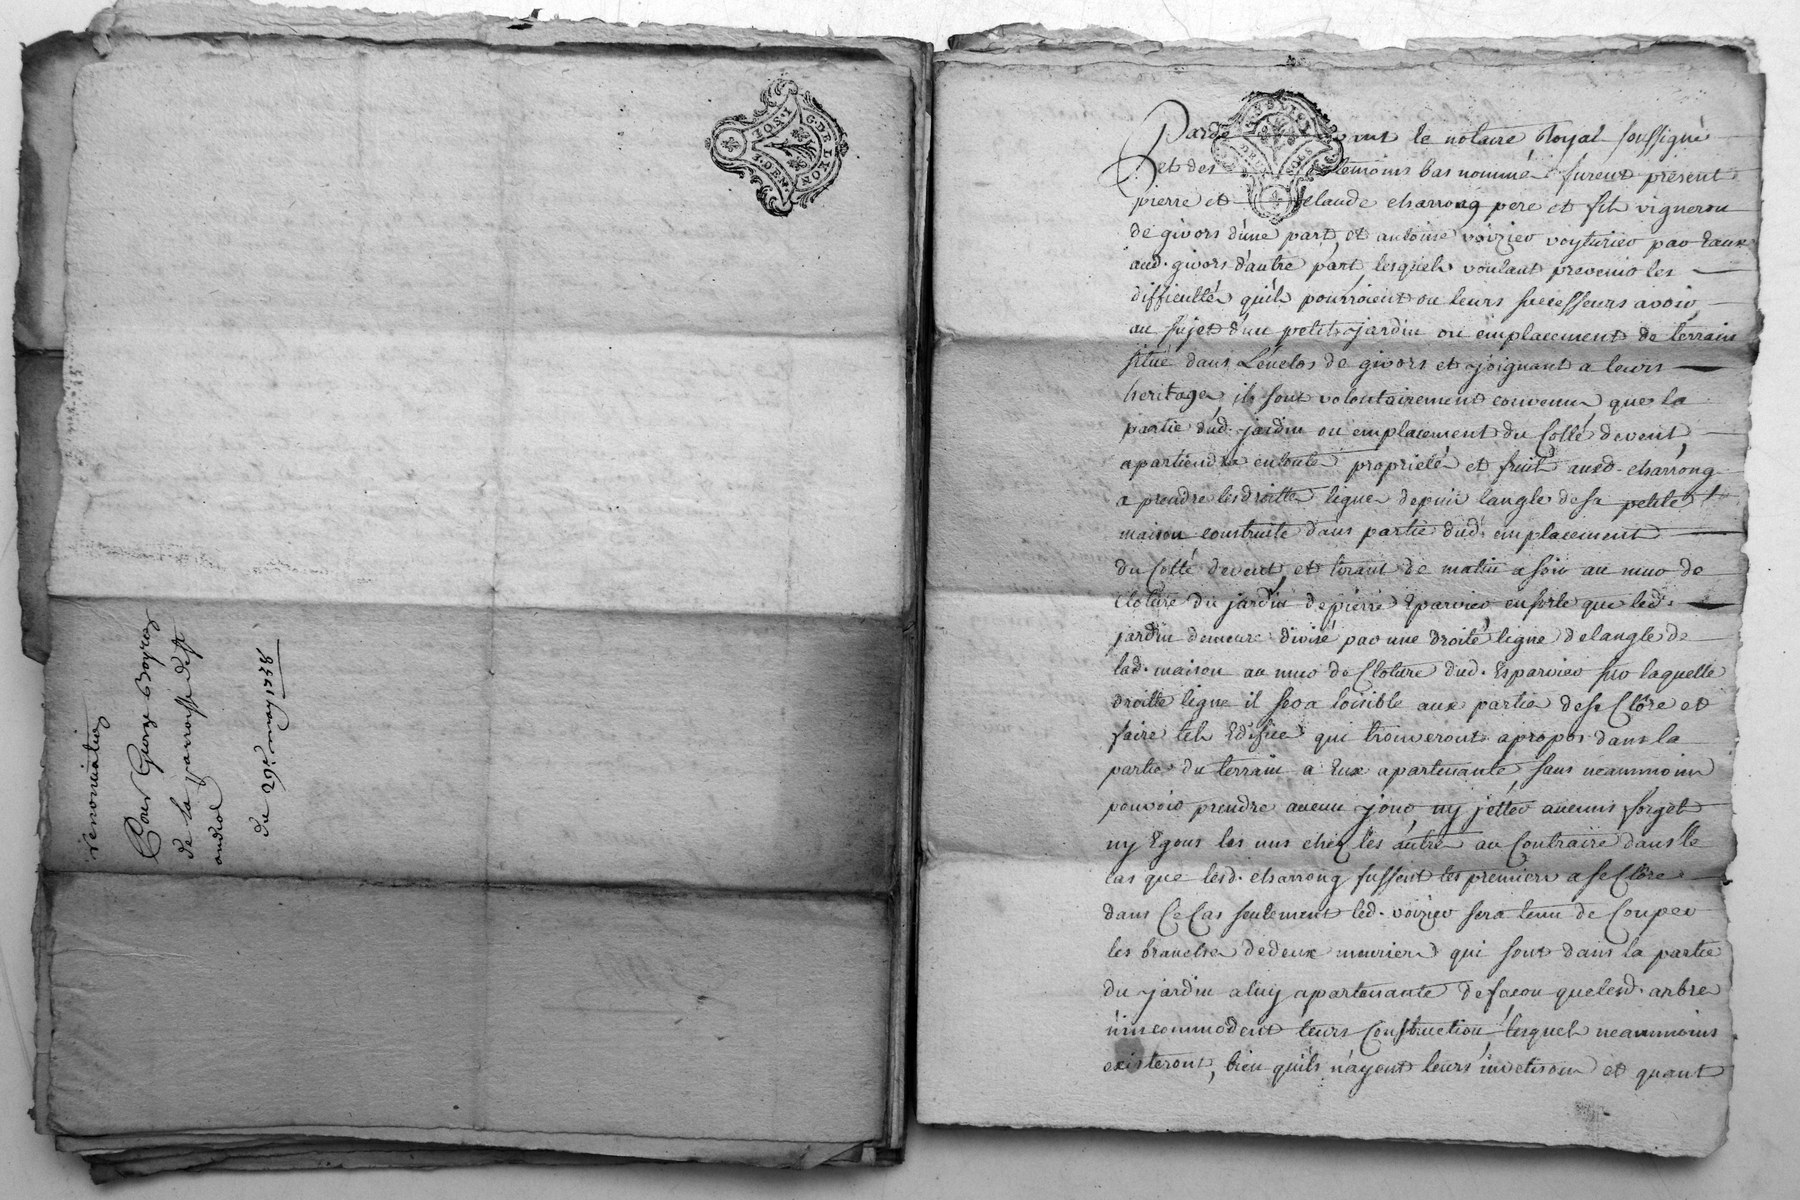 G. DE LYON
1. SOL
4. DEN
renonciation
Pour George Boyron
de la parroisse de St
andeol
du 29e. may 1758
Pardevant le notaire Royal soussigné
et des temoins bas nommés furent présent
pierre et claude charrong pere et fils vignerons
de givors d'une part, et antoine voizier voyturier par Eaux
aud. givors d'autre part, lesquels voulant prevenir les
difficultés qu'ils pourroient ou leurs successeurs avoir,
au sujet d'un petit jardin ou emplacement de terrain
situé dans L'enclos de givors et joignant a leurs
heritages, ils sont volontairement convenus que la
partie dud. jardin ou emplacement du Cotté de vent,
apartiendra en toute proprieté et fruit auxd. charrong
a prendre les droittes lignes depuis langle de la petite
maison construite dans partie dud. emplacement
du Cotté de vent, et tirant de matin a soir au mur de
Cloture du jardin de pierre Eparvier, en sorte que led.
jardin demeure divisé par une droite ligne de langle de
lad. maison au mur de Cloture dud. Esparvier sur laquelle
droitte ligne il sera loisible aux parties de se Clôre et
faire tels Edifices qui trouveront apropos dans la
partie du terrain a Eux apartenante, sans neanmoins
pouvoir prendre aucun jour, ny jetter aucuns forget
ny Egous les uns chez les autres au Contraire dans le
cas que lesd. charrong fussent les premiers a se Clôre
dans Ce Cas seulement led. voizier sera tenu de Couper
les branches de deux muriers qui sont dans la partie
du jardin a luy apartenante de façon que lesd. arbres
n'incommodent leurs Construction, lesquels neanmoins
existeront, bien qu'ils n'ayent leurs et quant